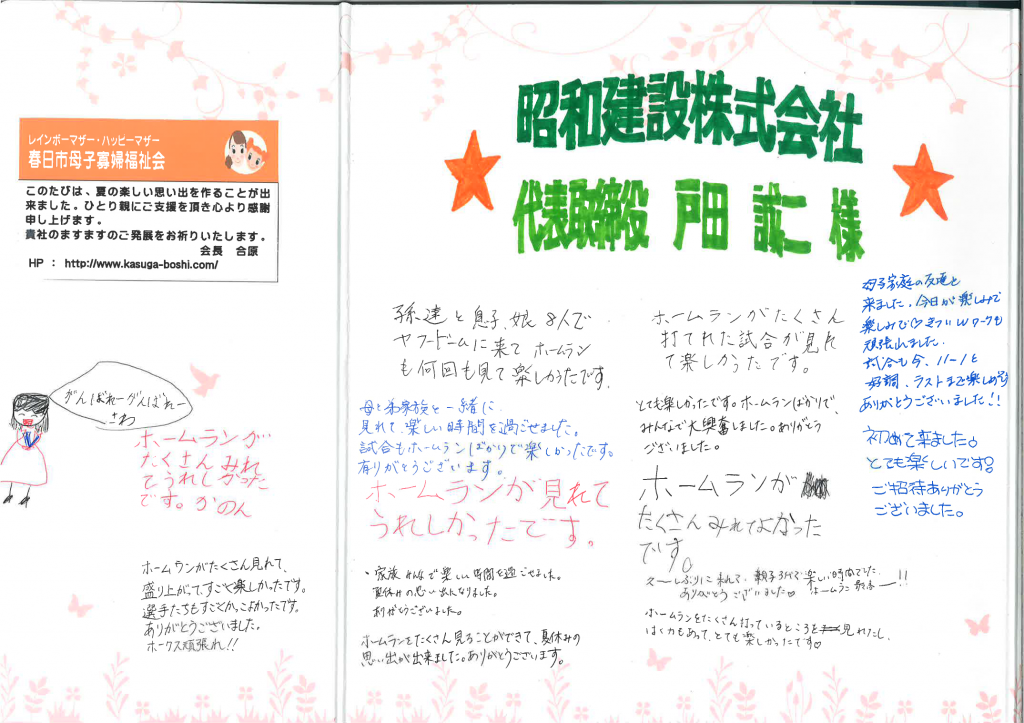 レインボーマザー・ハッピーマザー
春日市母子寡婦福祉会
このたびは、夏の楽しい思い出を作ることが出
来ました。ひとり親にご支援を頂き心より感謝
申し上げます。
貴社のますますのご発展をお祈りいたします。
会長 合原
HP : http://www.kasuga-boshi.com/
がんばれーがんばれー
さわ
ホームランが
たくさん みれ
てうれしかった
です。かのん
ホームランがたくさん見れて、
盛り上がって、すごく楽しかったです。
選手たちもすごくかっこよかったです。
ありがとうございました。
ホークス頑張れ!!
昭和建設株式会社
代表取締役 戸田 誠二 様
孫達と息子、娘 8人で
ヤフードームに来て ホームラン
も何回も見て楽しかったです。
母と弟家族と一緒に
見れて、楽しい時間を過ごせました。
試合もホームランばかりで楽しかったです。
有りがとうございます。
ホームランが見れて
うれしかったです。
・家族みんなで楽しい時間を過ごせました。
夏休みの思い出になりました。
ありがとうございました。
ホームランをたくさん見ることができて、夏休みの
思い出が出来ました。ありがとうございます。
ホームランがたくさん
打てれた試合が見れ
て楽しかったです。
とても楽しかったです。ホームランばかりで、
みんなで大興奮しました。ありがとう
ございました。
ホームランが
たくさんみれてよかった
です。
ひさしぶりに来れて、親子3代で楽しい時間でした
ありがとうございました♡ ホームラン最高ー!!
ホームランをたくさん打っているところを見れたし、
はく力もあって、とても楽しかったです♡
母子家庭の友達と
来ました。今日が楽しみで
楽しみで♡
頑張れました。
試合も今、11-1と
好調、ラストまで楽しめそう
ありがとうございました!!
初めて来ました。
とても楽しいです。
ご招待ありがとう
ございました。